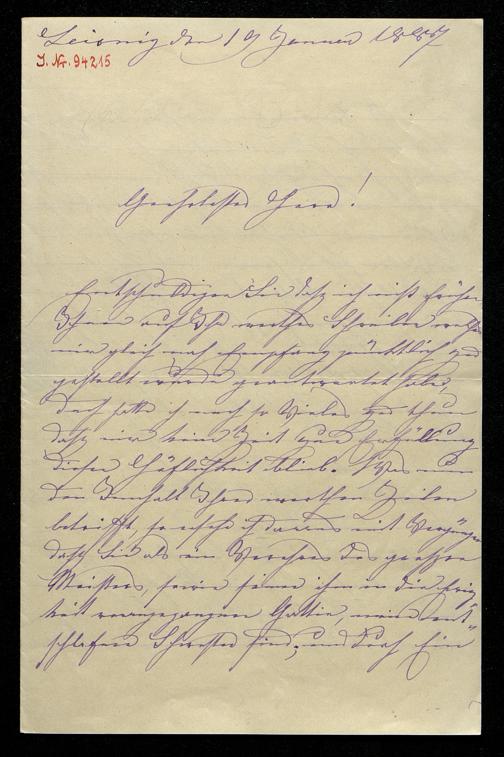 Leisnig den 19 Januar 1887
I. Nr. 94215
Geehrtester Herr!
Entschuldigen Sie daß ich nicht früher
Ihnen auf Ihr werthes Schreiben welches
mir gleich nach Empfang pünktlich zu
gestellt wurde geantwortet habe,
doch hatte ich noch so Vieles zu thun
daß mir keine Zeit zur Erfüllung
dieser Höflichkeit blieb. Was nun
den Innhalt Ihres werthen Zeilen
betrifft, so ersehe daraus mit Vergnügen
daß Sie als ein Verehrer des großen
Meisters, sowie seiner ihm in die Ewig
keit vorangegangen Gattin, meine ent
schlafene Schwester sind; und doch Ein